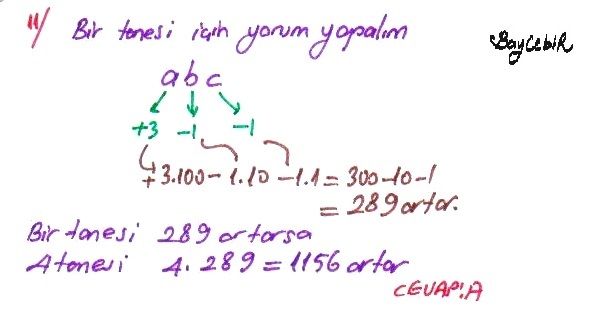 11/ Bir tanesi için yorum yapalım
BayCebiR
abc
+3 -1 -1
+3.100 - 1.10 - 1.1 = 300-10-1
= 289 artar.
Bir tanesi 289 artarsa
4 tanesi 4.289 = 1156 artar
CEVAP:A